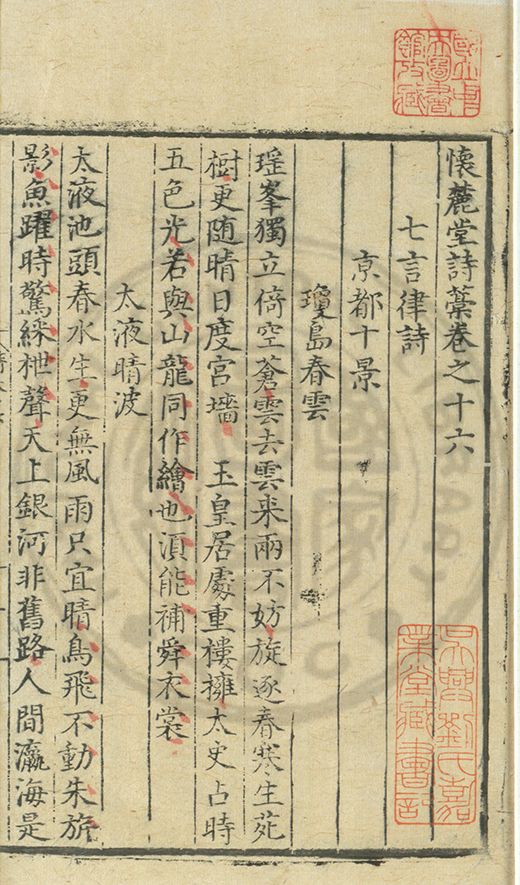 懷麓堂詩藁卷之十六
七言律詩
京都十景
瓊島春雲
瑶峯獨立倚空蒼雲去雲来兩不妨旋逐春寒生苑
樹更随晴日度宮墻 玉皇居處重樓擁太史占時
五色光若與山龍同作繪也湏能補舜衣裳
太液晴波
太液池頭春水生更無風雨只宜晴鳥飛不動朱旂
影魚躍時驚綵枻聲天上銀河非舊路人間瀛海是
國立中
央圖書
館攷藏
吳興劉氏嘉
業堂藏書記